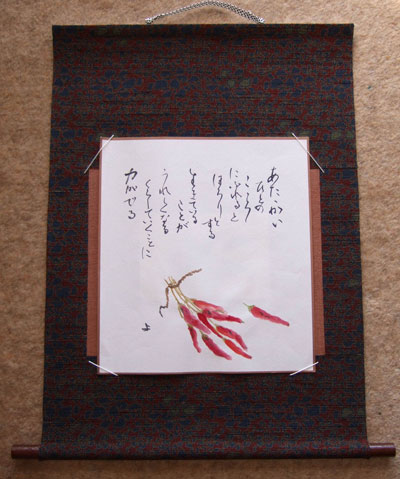 あたたかい
ひとの
こころ
にふれると
ほろりとする
生きている
ことが
うれしくなる
くらしていくことに
力がでる
よ